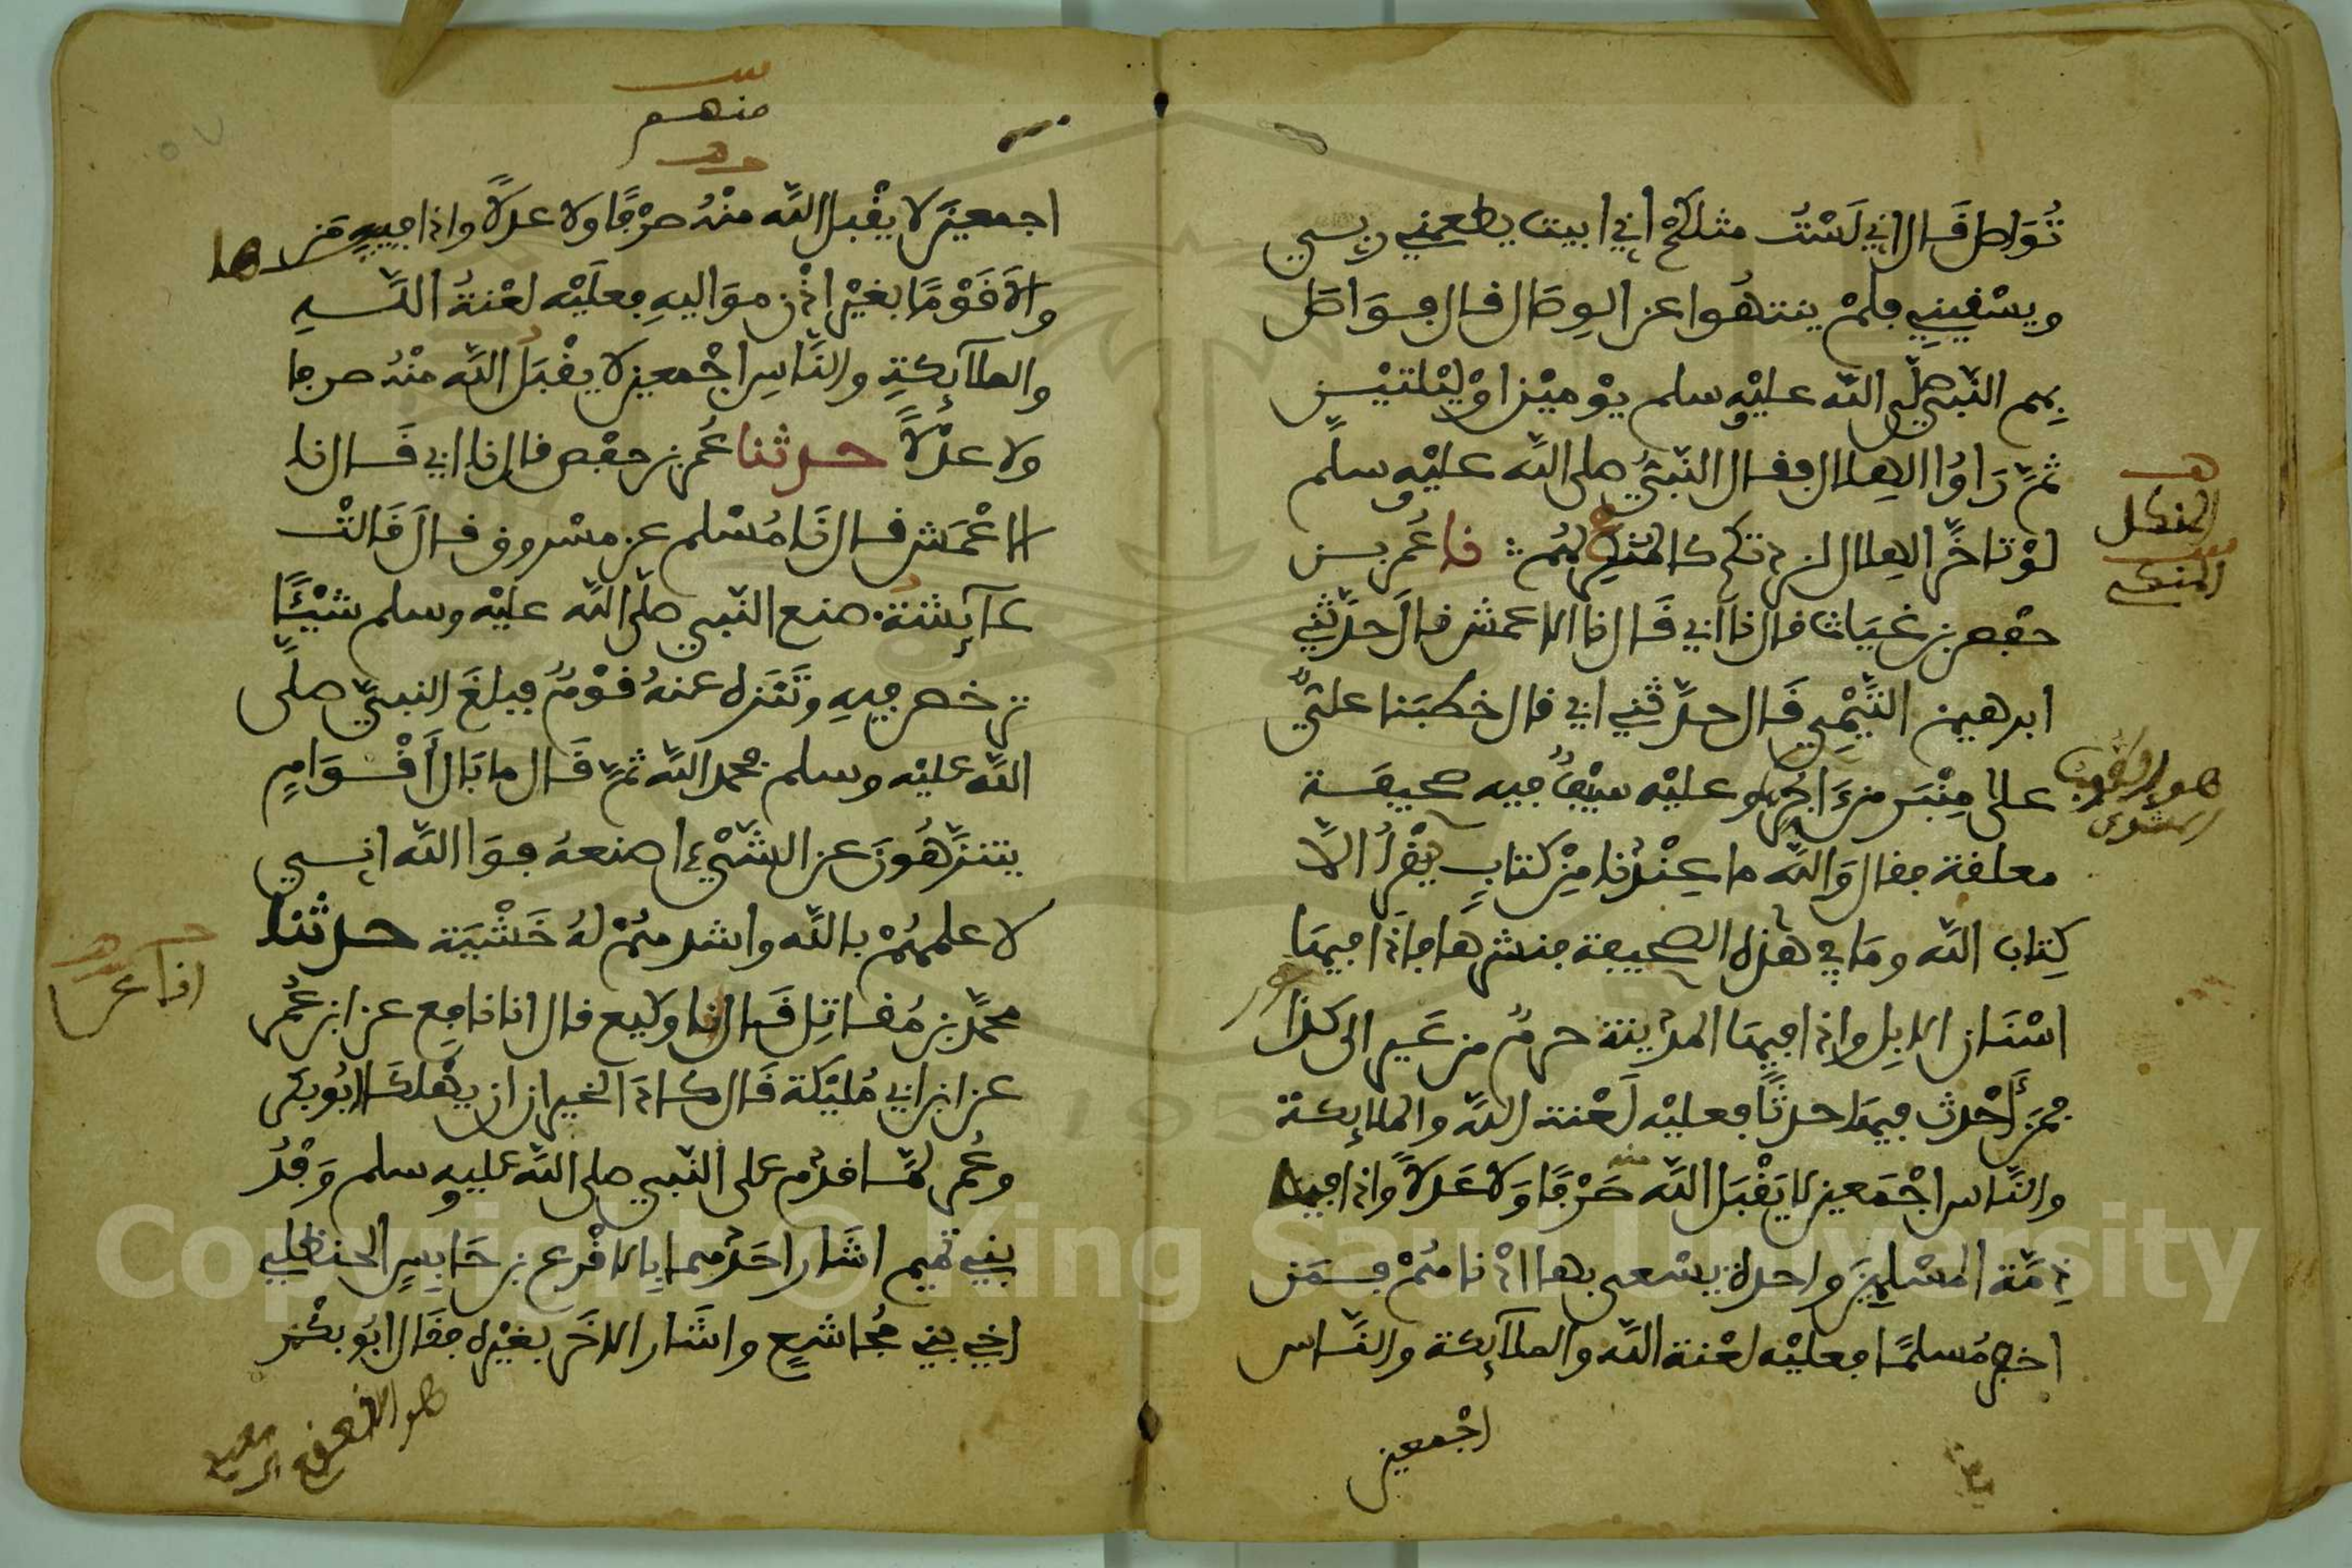 تُوَاصِل قَال اني لَسْتُ مثلكم اني ابيت يطعمني ربي
ويسْقيني فلمْ ينتهُوا عن الوِصَال قال فوَاصَل
بِهِم النّبي صلّى الله عليْه وسلم يوْميْن اوْ ليْلتيْن
ثمّ رَاوُا الهِلال فقال النّبيّ صلى الله عليْه وسلم
لوْ تاخّر الهلال لزدتكم كالمنكي لهُم نا عُمر بن
حفص بن غيَاث قال نا ابي قَال نا الاعمش قال حدّثني
ابرهيم التّيْمِي قَال حدّثني ابي قال خطبَنا عليّ
على مِنْبَر من ءَاجُر وعليْه سيْفٌ فيه صحيفة
معلقة فقال وَالله ما عِنْدنا مِنْ كتابٍ يُقْرأُ الاّ
كِتاب الله ومَا في هٰذه الصحيفة فنشرها فاذَا فيهَا
اسْنَان الابلِ واذا فيهَا المدينة حرمٌ من عَير الى كذا
فمَن أَحْدث فيهَا حدثًا فعليْه لَعْنة الله والملائكة
والنَّاس اجْمَعين لا يَقْبَل الله منه صَرْفًا وَلا عَدلاً واذا فيه
ذِمَّة المسْلِمِينَ واحدة يسْعى بها ادْناهُمْ فمَن
اخفر مُسلمًا فعليْه لعْنة الله والملآئكة والنَّاس
اجْمعين
هـ
المنكل
س
المنكي
منهم
اجمعينَ لا يقْبل الله منْهُ صرْفًا ولا عدلاً واذا فيهِ مَن
والَى قوْمًا بغيْر اذْن موَاليهِ فعلَيْه لعْنةُ اللهِ
والملآئكةِ والنَّاسِ اجْمعين لا يقْبَلُ الله منْهُ صرفا
ولا عدْلاً حدثنا عُمر بن حفْص قال نا ابي قَال نا
الاعْمَش قال نَا مُسْلم عن مسْروق قال قَالتْ
عآئشة صنع النّبي صلى الله عليْه وسلم شيْئًا
ترخص فيهِ وتَنَزه عنهُ قوْمٌ فبلغَ النبيّ صلّى
الله عليْه وسلم فحمد الله ثمّ قَال ما بَال أَقْوَامٍ
يتنزّهُونَ عن الشّيْء اصنعهُ فوَالله اني
لاعلمهُمْ بالله واشدهمْ لهُ خَشْيَة حدثنا
محمّد بن مُقاتِل قَال انا وكيع قال انا نافع عن ابن عُمر
عن ابن ابي مُليْكة قَال كادَ الخيران ان يهْلكَا ابُو بكر
وعُمر لمّا قدم على النّبي صلى الله عليه وسلم وَفْدُ
بني تميم اشَار احَدهما بِالاقْرع بن حَابسٍ الحنظلي
اخي بني مُجاشعٍ واشَار الاخَر بغيْره فقَال ابُو بكْر